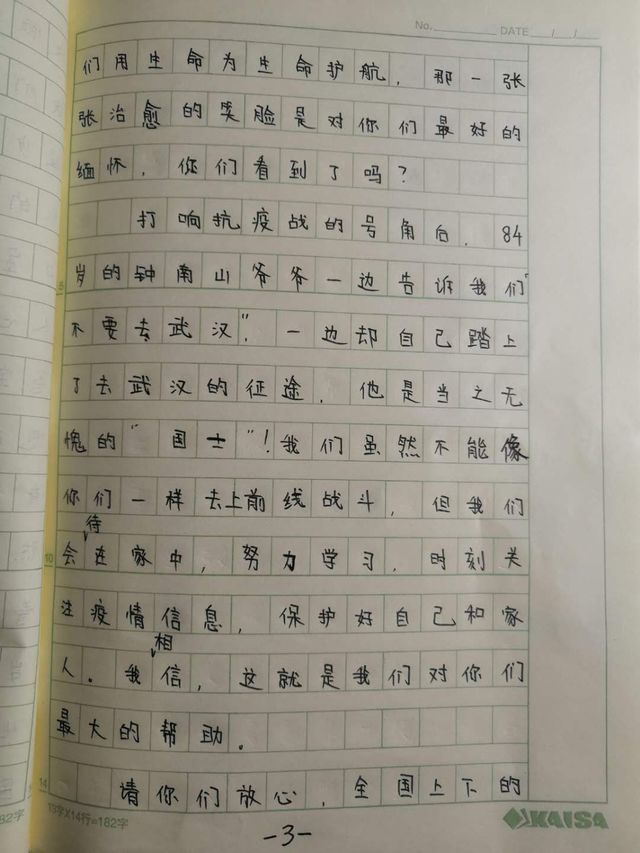 No. DATE / /
们用生命为生命护航，那一张
张治愈的笑脸是对你们最好的
缅怀，你们看到了吗？
打响抗疫战的号角后，84
岁的钟南山爷爷一边告诉我们"
不要去武汉"，一边却自己踏上
了去武汉的征途，他是当之无
愧的"国士"！我们虽然不能像
你们一样去上前线战斗，但我们
会待在家中，努力学习，时刻关
注疫情信息，保护好自己和家
人。我相信，这就是我们对你们
最大的帮助。
请你们放心，全国上下的
5
10
14
13字X14行=182字
82字
KAISA
-3-